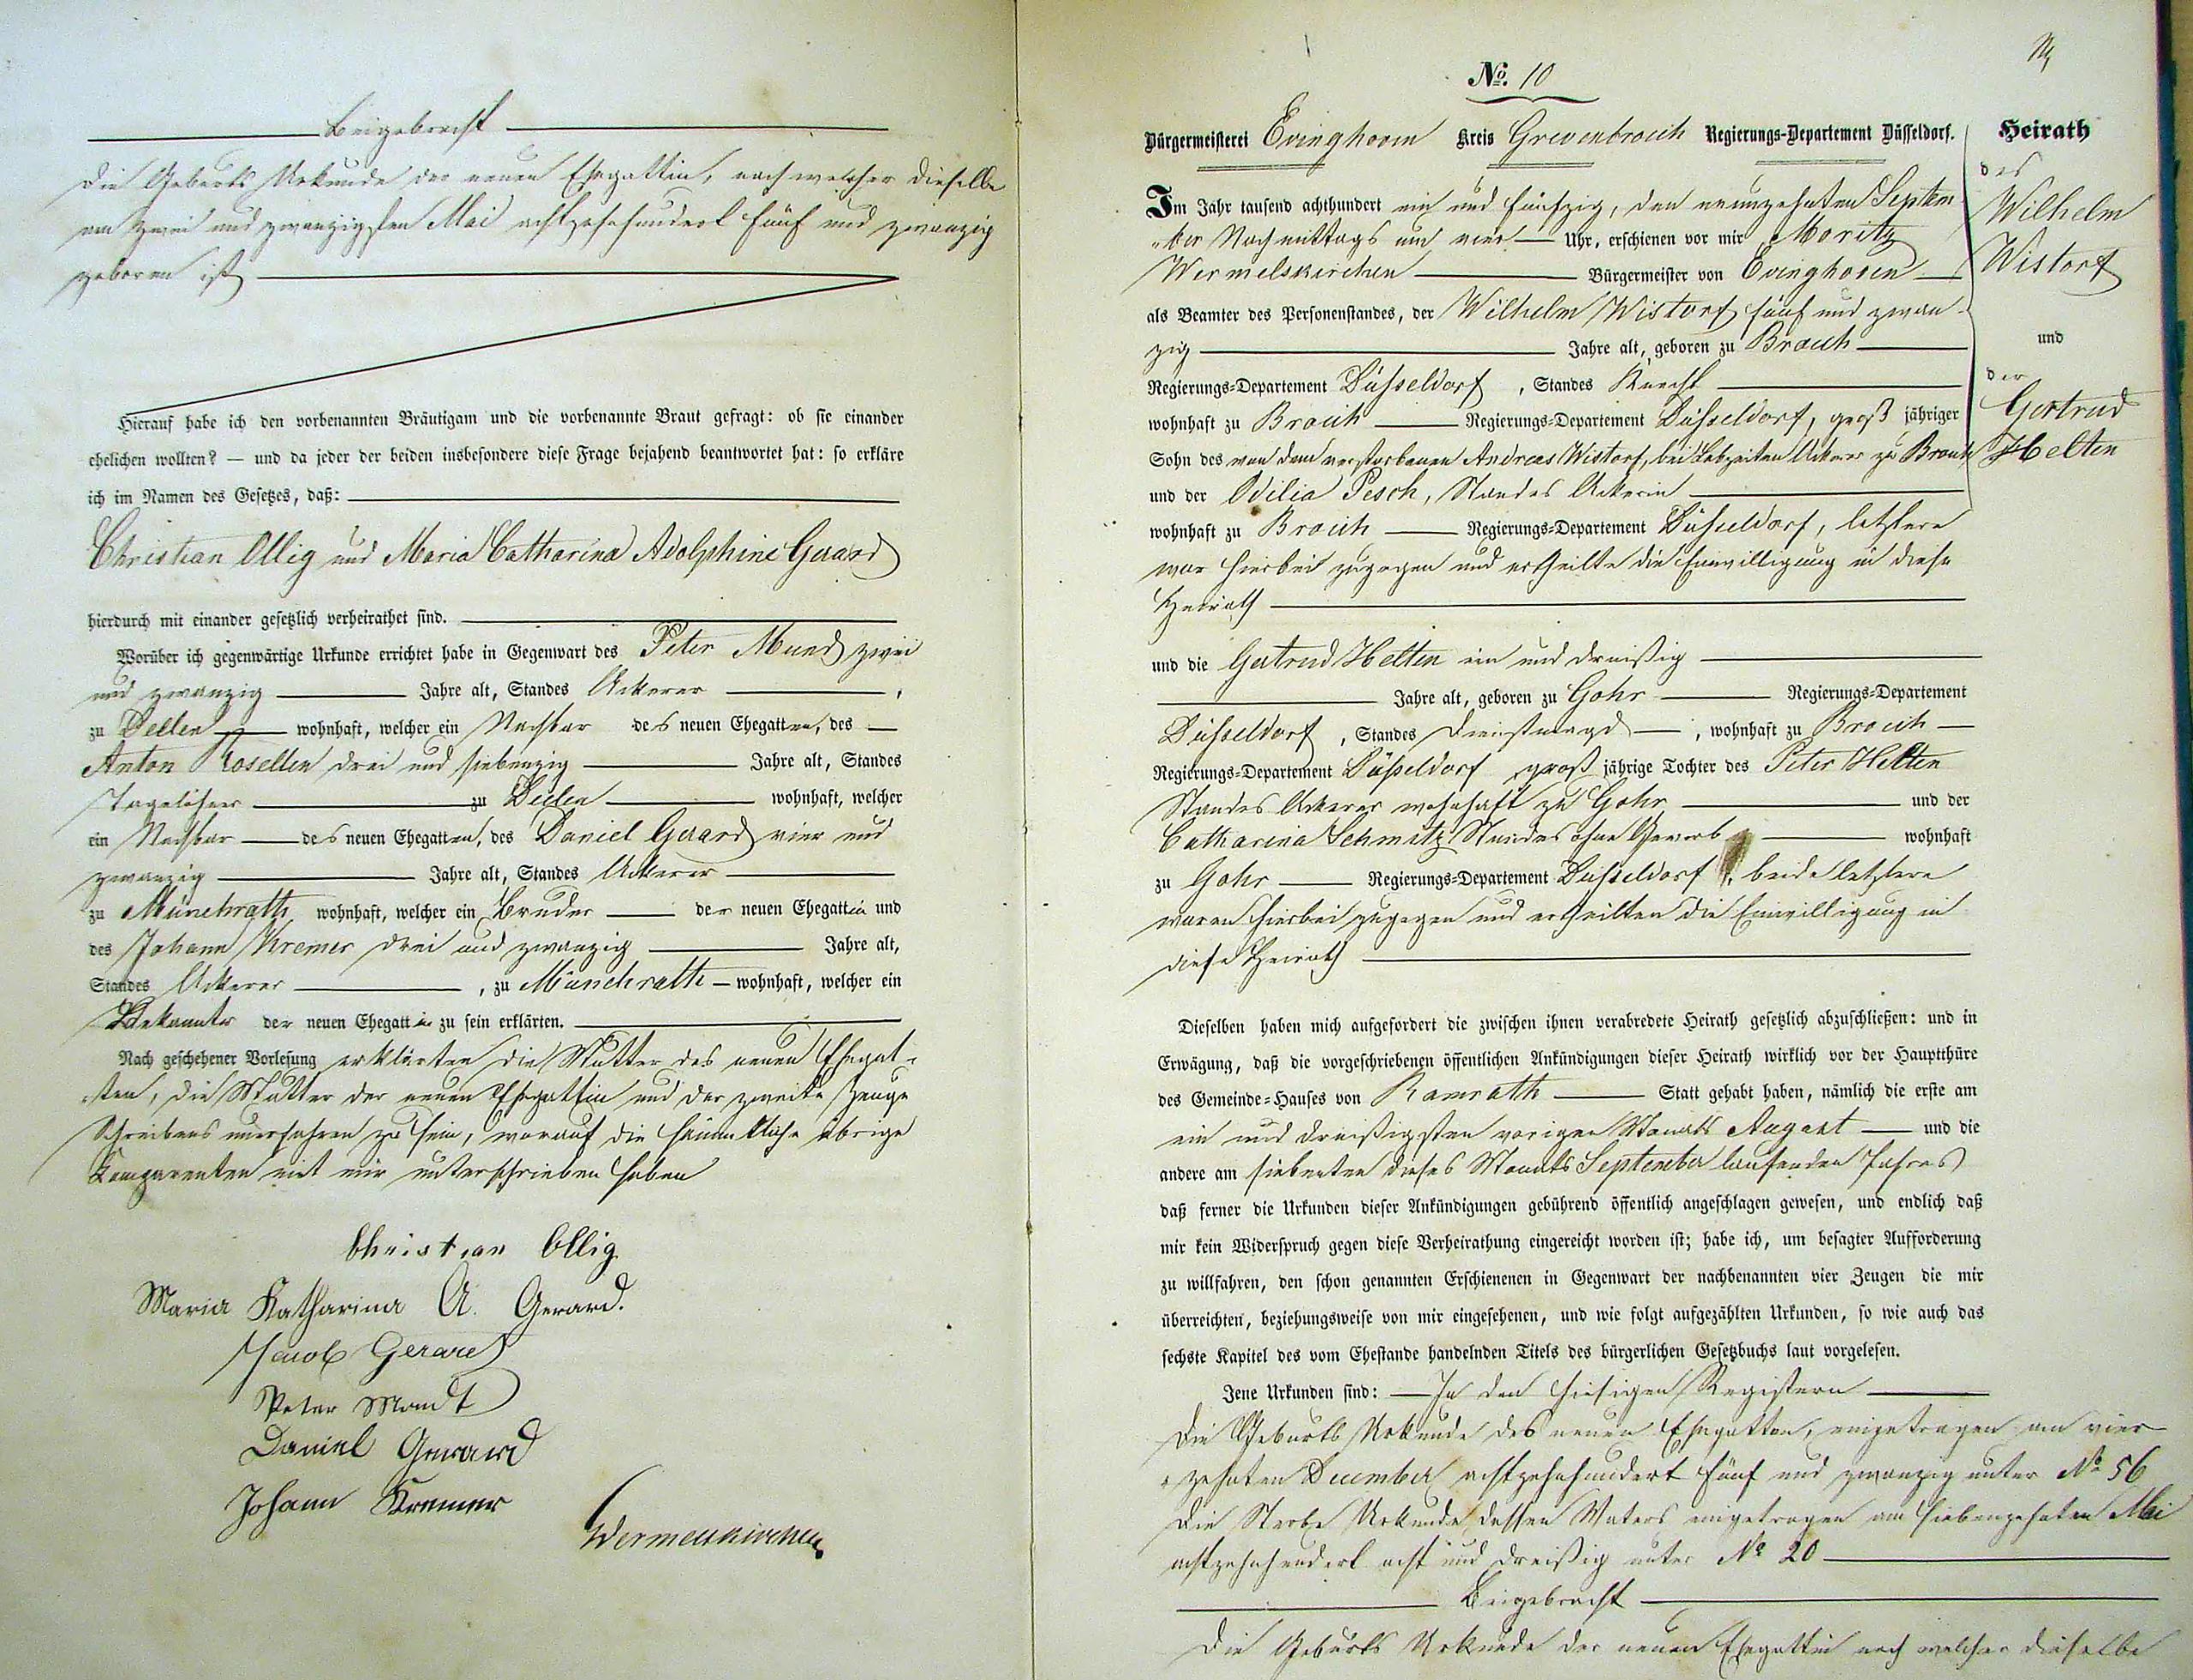 Beigebracht
Die Geburts Urkunde der neuen Ehegattin, nach welcher dieselbe
am zwei und zwanzigsten Mai achtzehnhundert fünf und zwanzig
geboren ist
Hierauf habe ich den vorbenannten Bräutigam und die vorbenannte Braut gefragt: ob sie einander
ehelichen wollten? — und da jeder der beiden insbesondere diese Frage bejahend beantwortet hat: so erkläre
ich im Namen des Gesetzes, daß:
Christian Ollig und Maria Catharina Adolphine Gerard
hierdurch mit einander gesetzlich verheirathet sind.
Worüber ich gegenwärtige Urkunde errichtet habe in Gegenwart des Peter Mund zwei
und zwanzig Jahre alt, Standes Ackerer,
zu Deelen wohnhaft, welcher ein Nachbar des neuen Ehegatten, des
Anton Rosellen drei und siebenzig Jahre alt, Standes
Tagelöhner zu Deelen wohnhaft, welcher
ein Nachbar des neuen Ehegatten, des Daniel Gerard vier und
zwanzig Jahre alt, Standes Ackerer
zu Münchrath wohnhaft, welcher ein Bruder der neuen Ehegattin und
des Johann Kremer drei und zwanzig Jahre alt,
Standes Ackerer, zu Münchrath wohnhaft, welcher ein
Bekannter der neuen Ehegattin zu sein erklärten.
Nach geschehener Vorlesung erklärten die Mutter des neuen Ehegat-
ten, die Mutter der neuen Ehegattin und der zweite Zeuge
Schreibens unerfahren zu sein, worauf die sämmtliche übrige
Komparenten mit mir unterschrieben haben
Christian Ollig
Maria Katharina A. Gerard.
Jacob Gerard
Peter Mondt
Daniel Gerard
Johann Kremer
Wermelskirchen
№. 10
Bürgermeisterei Evinghoven Kreis Grevenbroich Regierungs-Departement Düsseldorf.
Im Jahr tausend achthundert ein und fünfzig, den neunzehnten Septem
ber Nachmittags um vier Uhr, erschienen vor mir Moritz
Wermelskirchen Bürgermeister von Evinghoven
als Beamter des Personenstandes, der Wilhelm Wistorf fünf und zwan
zig Jahre alt, geboren zu Broich
Regierungs-Departement Düsseldorf, Standes Knecht
wohnhaft zu Broich Regierungs-Departement Düsseldorf, groß jähriger
Sohn des von dem verstorbenen Andreas Wistorf, bei Lebzeiten Ackerer zu Broich
und der Odilia Pesch, Standes Ackerin
wohnhaft zu Broich Regierungs-Departement Düsseldorf, letztere
war hierbei zugegen und ertheilte die Einwilligung in diese
Heirath
und die Gertrud Helten ein und dreißig
Jahre alt, geboren zu Gohr Regierungs-Departement
Düsseldorf, Standes Dienstmagd, wohnhaft zu Broich
Regierungs-Departement Düsseldorf groß jährige Tochter des Peter Helten
Standes Ackerer wohnhaft zu Gohr und der
Catharina Schmitz Standes ohne Gewerb wohnhaft
zu Gohr Regierungs-Departement Düsseldorf, beide letztere
waren hierbei zugegen und ertheilten die Einwilligung in
diese Heirath
Dieselben haben mich aufgefordert die zwischen ihnen verabredete Heirath gesetzlich abzuschließen: und in
Erwägung, daß die vorgeschriebenen öffentlichen Ankündigungen dieser Heirath wirklich vor der Hauptthüre
des Gemeinde-Hauses von Ramrath Statt gehabt haben, nämlich die erste am
ein und dreißigsten vorigen Monats August und die
andere am siebenten dieses Monats September laufenden Jahres
daß ferner die Urkunden dieser Ankündigungen gebührend öffentlich angeschlagen gewesen, und endlich daß
mir kein Widerspruch gegen diese Verheirathung eingereicht worden ist; habe ich, um besagter Aufforderung
zu willfahren, den schon genannten Erschienenen in Gegenwart der nachbenannten vier Zeugen die mir
überreichten, beziehungsweise von mir eingesehenen, und wie folgt aufgezählten Urkunden, so wie auch das
sechste Kapitel des vom Ehestande handelnden Titels des bürgerlichen Gesetzbuchs laut vorgelesen.
Jene Urkunden sind: In den hiesigen Registern
Die Geburts Urkunde des neuen Ehegatten, eingetragen am vier
zehnten December achtzehnhundert fünf und zwanzig unter № 56
Die Sterbe Urkunde dessen Vaters eingetragen am siebenzehnten Mai
achtzehnhundert acht und dreißig unter № 20
Beigebracht
Die Geburts Urkunde der neuen Ehegattin nach welcher dieselbe
Heirath
des
Wilhelm
Wistorf
und
der
Gertrud
Helten